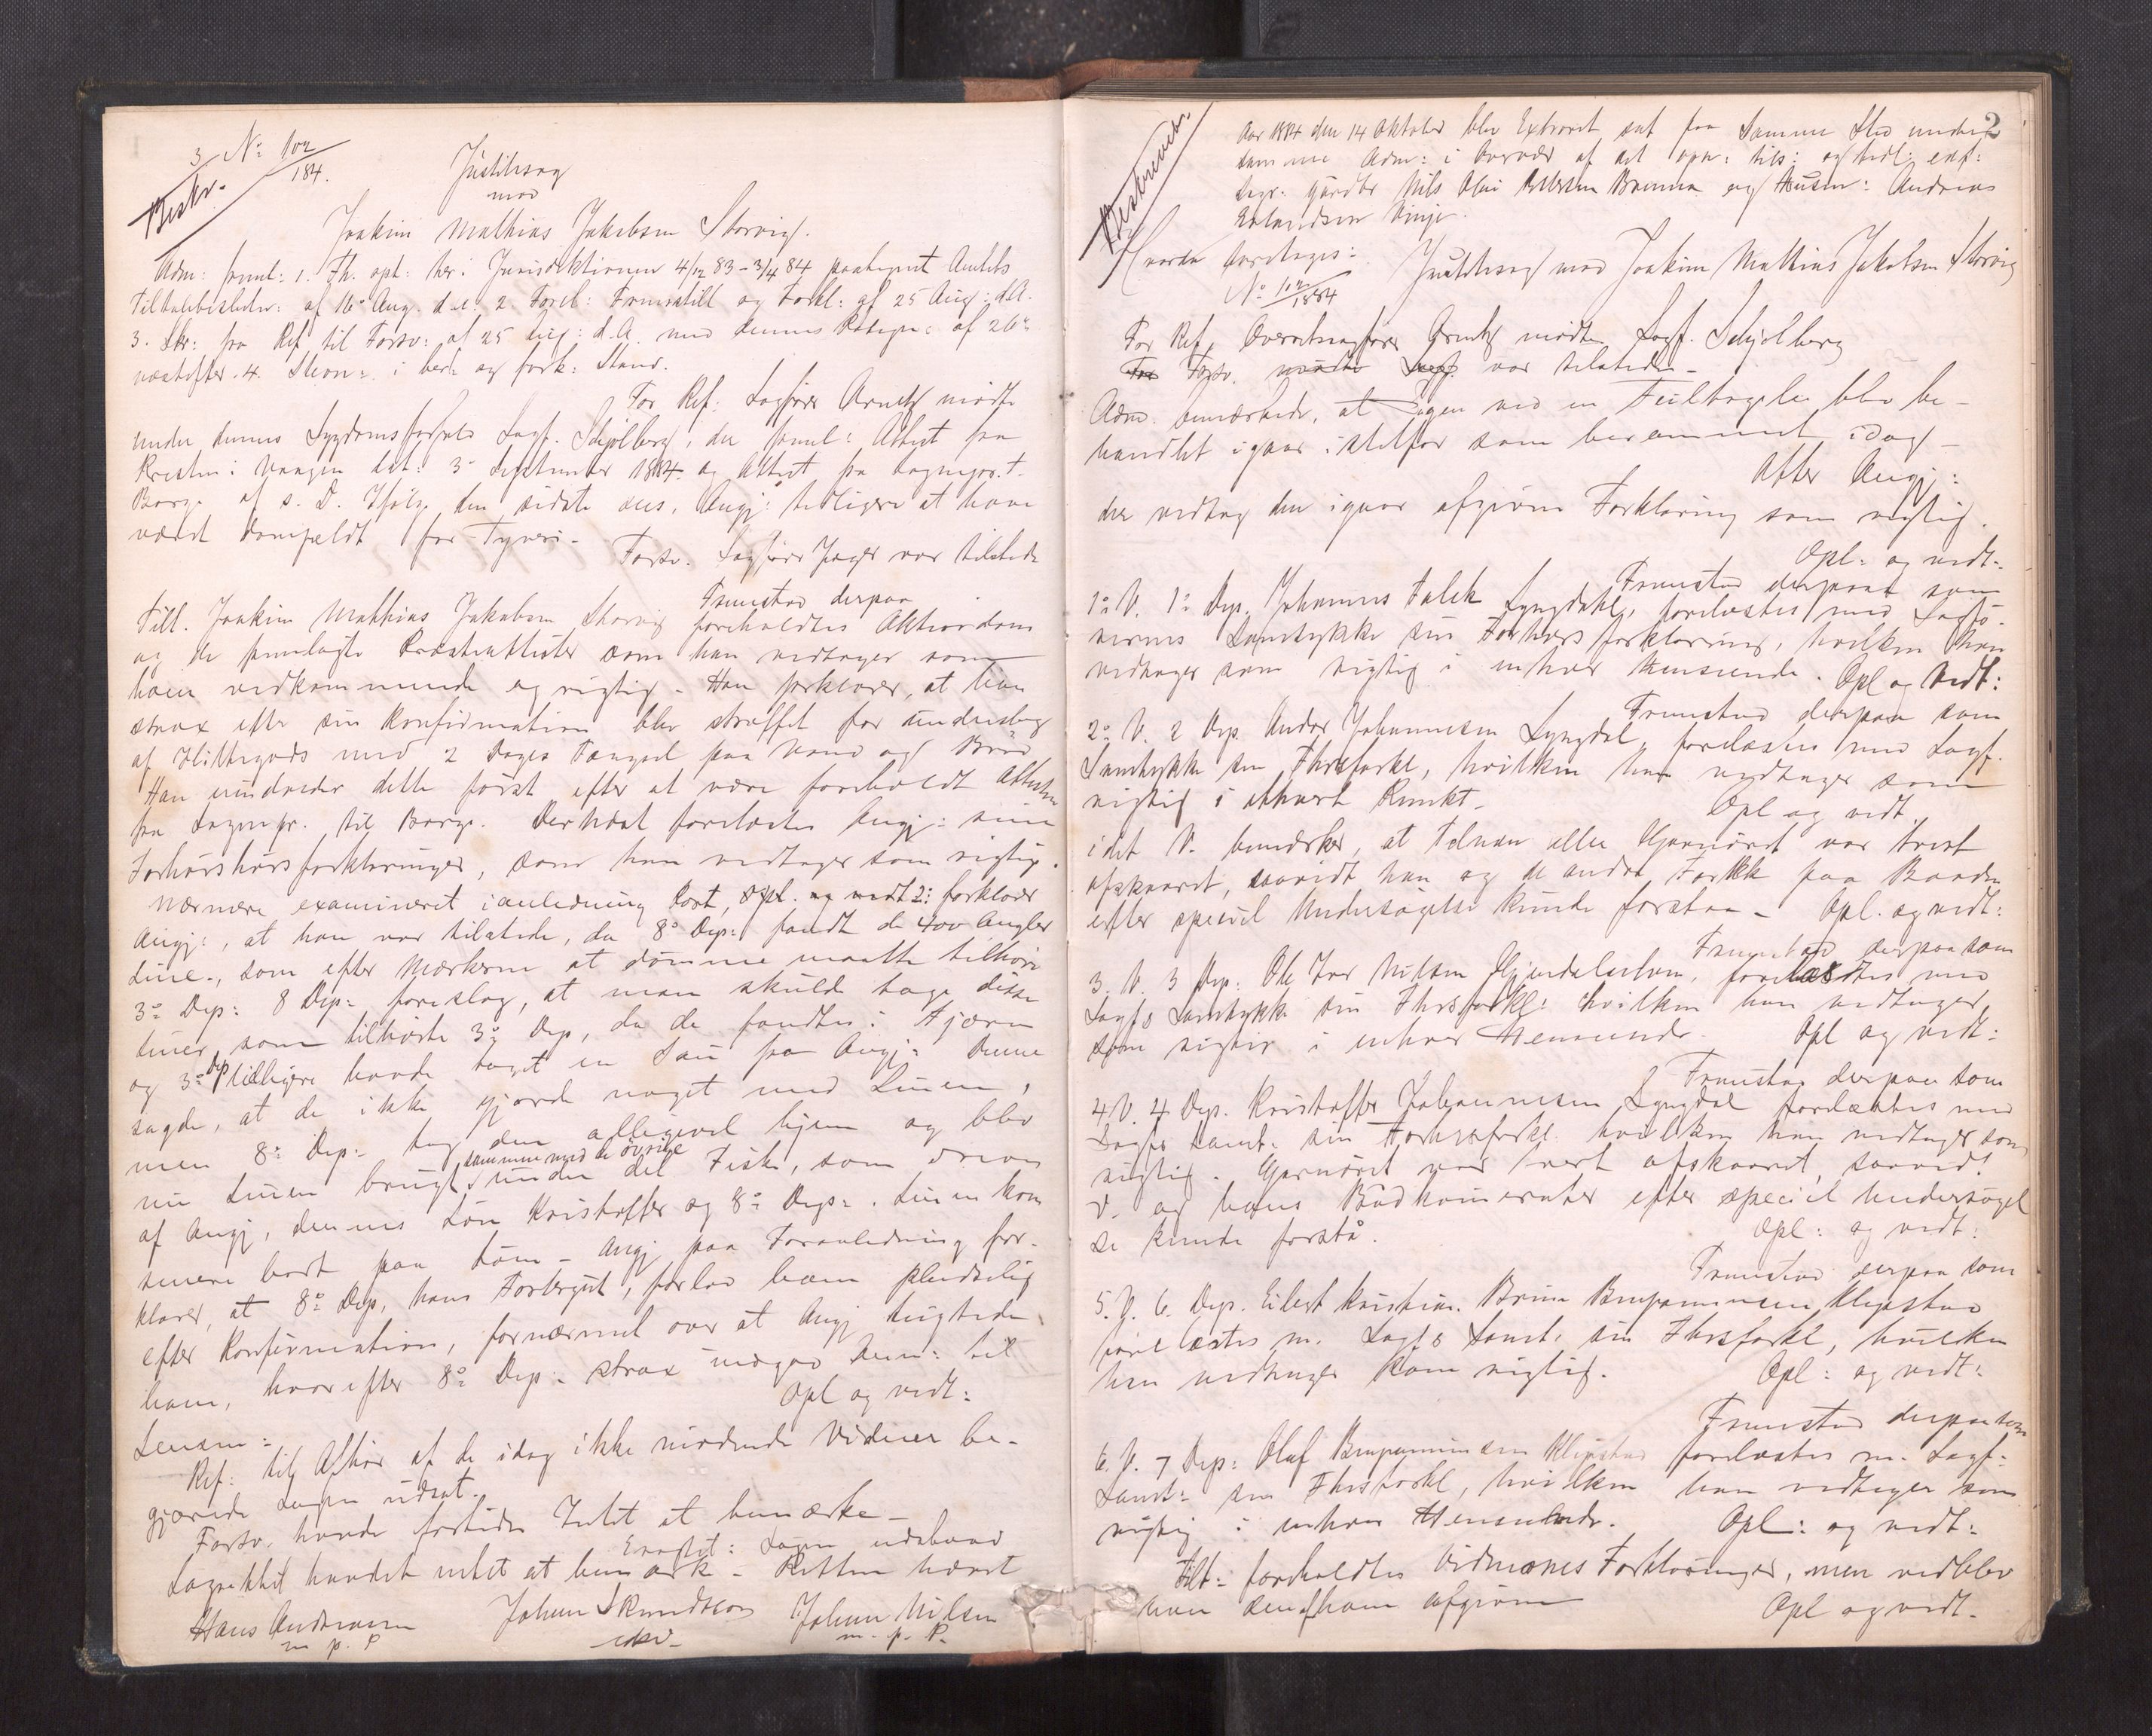 3 No: 102/184.
Beskr.
Justitssag
mod
Joakim Mathias Jakobsen Storvig.
Adm: freml: 1. Fh. opt: her i Jurisdiktionen 4/12 83 – 3/4 84 paategnet Amtets
Tiltalebeslutn: af 16 Aug. d. A. 2. Forel: Fremstill og Forkl: af 25 Aug: d.A.
3. Skr: fra Ref til Forsv: af 25 Aug: d.A. med dennes Paategn: af 26
næstefter. 4. Stevn: i ber: og fork: Stand.
For Ref: Sagfører Arentz mødte
under dennes Sygdomsforfald Sagf. Schjølberg, der freml: Attest fra
Presten i Vaagan dat: 3 September 1884 og Attest fra Sogneprest.
Borge af s. D. Ifølge den sidste sees, Angj: tidligere at have
været domfældt for Tyveri.
Forsv. Sagfører Jæger var tilstede
Fremstod derpaa
Tilt. Joakim Mathias Jakobsen Storvig foreholdtes Aktordom
og de fremlagte Presteattester som han vedtager som
ham vedkommende og rigtig. Han forklarer, at han
strax efter sin Konfirmation blev straffet for Underslag
af Hittegods med 2 Dages Fængsel paa Vand og Brød
Han indrøder dette først efter at være foreholdt Attesten
fra Sognepr. til Borge. Dernæst forelæstes Angj: sine
Forhørshørsforklaringer, som han vedtager som rigtig.
Nærmere examineret ianledning Post, opl. og vedt 2: forklarer
Angj:, at han var tilstede, da 8° Dep: fandt de 400 Angler
Line, som efter Mærkerne at dømme maatte tilhøre
3° Dep: 8 Dep: foreslog, at man skulde tage disse
Liner, som tilhørte 3° Dep, da de fandtes i Fjæren
og 3° Dep tidligere havde taget en Sau fra Angj: Denne
sagde, at de ikke gjorde noget med Linen,
men 8: Dep: tog den alligevel hjem og blev
nu Linen brugt sammen med de øvrige under det Fiske, som dreves
af Angj, dennes Søn Kristoffer og 8: Dep:. Linen kom
senere bort paa Søen – Angj paa Foranledning for-
klarer, at 8: Dep, hans Fostergut, forlod ham pludselig
efter Konfirmation, fornærmet over at Angj tugtede
ham, hvorefter 8: Dep: strax indgav Anm: til
Lensm: Opl og vedt:
Ref: til Afhør af de idag ikke mødende Vidner be-
gjærede Sagen udsat.
Forsv. havde fortiden Intet at bemærke –
Eragtet: Sagen udsbevs
Lagrettet havdet intet at bemærk – Retten hævet
Hans Andreasen
m p P
Johan Nilsen
m. p. P.
2
Beskrevet.
Aar 1884 den 14 Oktober blev Extraret sat paa Samme Sted under
samme Adm: i Overvær af det opn: tils: og edf:
Lagr: Gårdbr Nils Olai Brenna og Husm: Andreas
Erlandsen Vinje.
Hvorda foretages:
No 102/1884
Justitssag mod Joakim Mathias Jakobsen Storvig
For Ref, Overretssagfører Arentz mødte Sagf. Schjølberg
For Forsv. mødte Sagf. var tilstede –
Adm. bemærkede, at Sagen ved en Feiltagelse blev be-
handlet igaar istedfor som berammet idag –
After Angj:
der vedtog den igaar afgivne Forklaring som rigtig.
Opl: og vedt:
Fremstod derpaa som
1: V. 1: Dep. Johannes Falck Lyngdahl, forelæstes med Sagfø-
rernes Samtykke sin Forhørsforklaring, hvilken han
vedtager som rigtig i enhver Henseende. Opl og Vedt:
Fremstod derpaa som
2: V. 2 Dep. Andor Johannesen Lyngdal, forelæstes med Sagf.
Samtykke sin Fhrsforkl, hvilken han vedtager som
rigtig i ethvert Punkt – Opl og vedt.
idet V. bemærker, at Telnæn eller Garnøret var tvert
afskaaret, saavidt han og de andre Folk paa Baaden
efter speciel Undersøgelse kunde forstaa – Opl. og vedt:
Fremstod derpaa som
3. V. 3 Dep: Ole Nilsen forelæstes med
Sagfs Samtykke sin Fhrsforkl: hvilken han vedtager
som rigtig i enhver Henseende. Opl og vedt:
Fremstod derpaa som
4 V. 4 Dep. Kristoffer Johannesen Lyngdal forelæstes med
Sagfs Samt: sin Forhrsforkl. hvilken han vedtager som
rigtig. Garnøret var tvert afskaaret, saavidt
V. og hans Bådkamerater efter speciel Undersøgel
se kunde forstå. Opl: og vedt:
Fremstod derpaa som
5. V. 6. Dep. Eilert Kristian Benjaminsen Klepstad
forelæstes m. Sagfs Samt. sin Fhrsforkl, hvilken
han vedtager som rigtig. Opl: og vedt:
Fremstod derpaa som
6. V. 7 Dep: Olaf Benjaminsen Klepstad forelæstes m. Sagf:
Samt: sin Fhrsforkl, hvilken han vedtager som
rigtig i enhver Henseende. Opl: og vedt:
Tilt: foreholdtes Vidnernes Forklaringer, men vedblev
den af ham afgivne Opl og vedt.